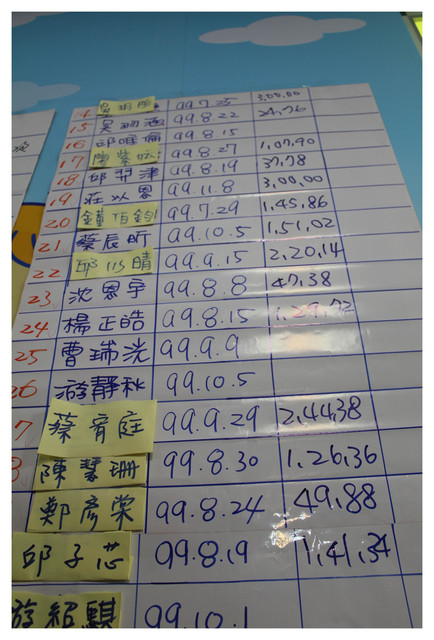 99.7.25 3,00,00
15 99.8.22 24,76
16 邱唯倫 99.8.15
17 陳紫 99.8.27 1,07,90
18 邱 津 99.8.19 37,78
19 莊以恩 99.11.8 3,00,00
20 鍾佰鈞 99.7.29 1,45,86
21 蔡辰昕 99.10.5 1,51,02
22 邱 晴 99.9.15 2,20,14
23 沈恩宇 99.8.8 47,38
24 楊正皓 99.8.15 1,29,72
25 曹瑞洸 99.9.9
26 游靜秋 99.10.5
7 蔡宥庭 99.9.29 2,44,38
8 陳慧珊 99.8.30 1,26,36
鄭彥棠 99.8.24 49,88
邱子芯 99.8.19 1,41,34
游紹騏 99.10.1